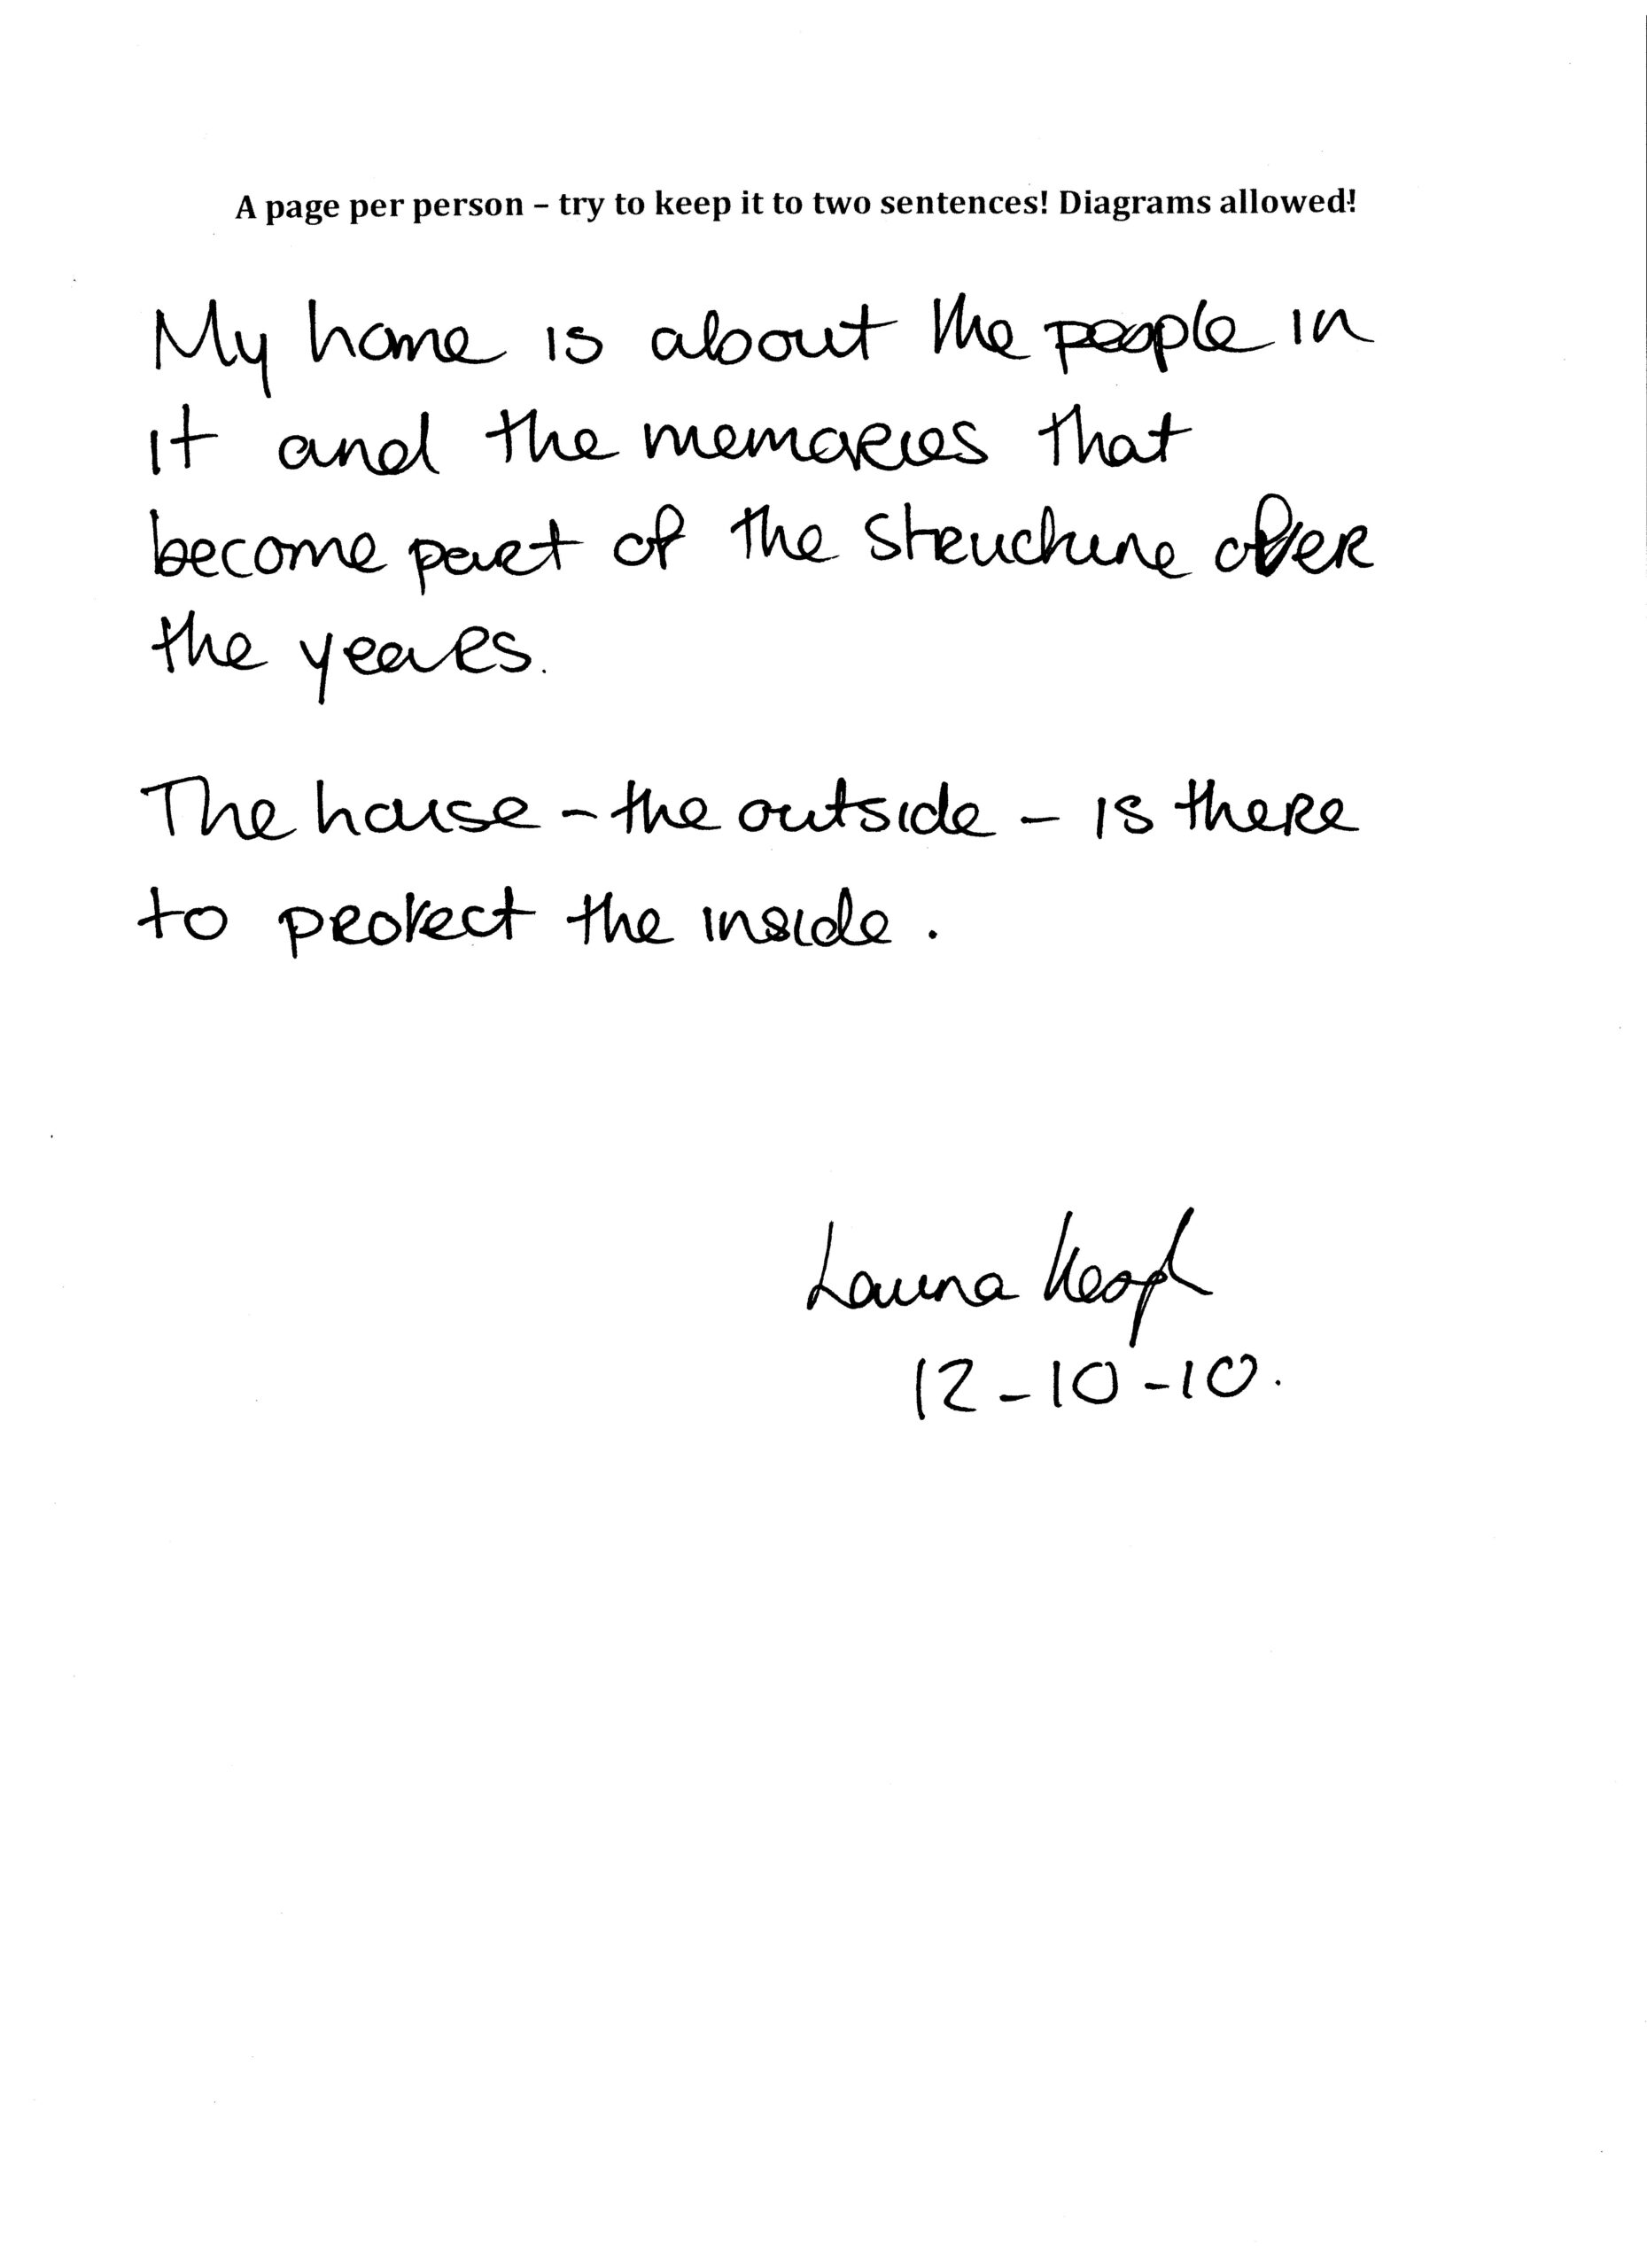 A page per person – try to keep it to two sentences! Diagrams allowed!
My home is about the people in
it and the memories that
become part of the structure over
the years.
The house – the outside – is there
to protect the inside.
12-10-10.